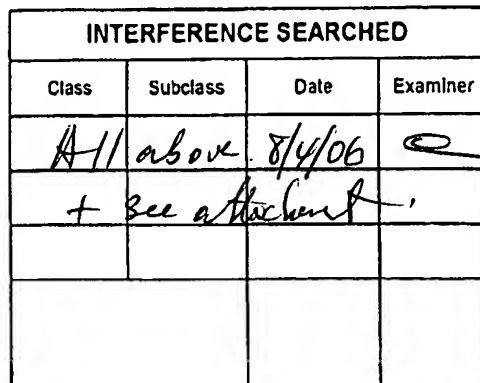 INTERFERENCE SEARCHED
Class Subclass Date Examiner
All above 8/4/06
+ see attachment